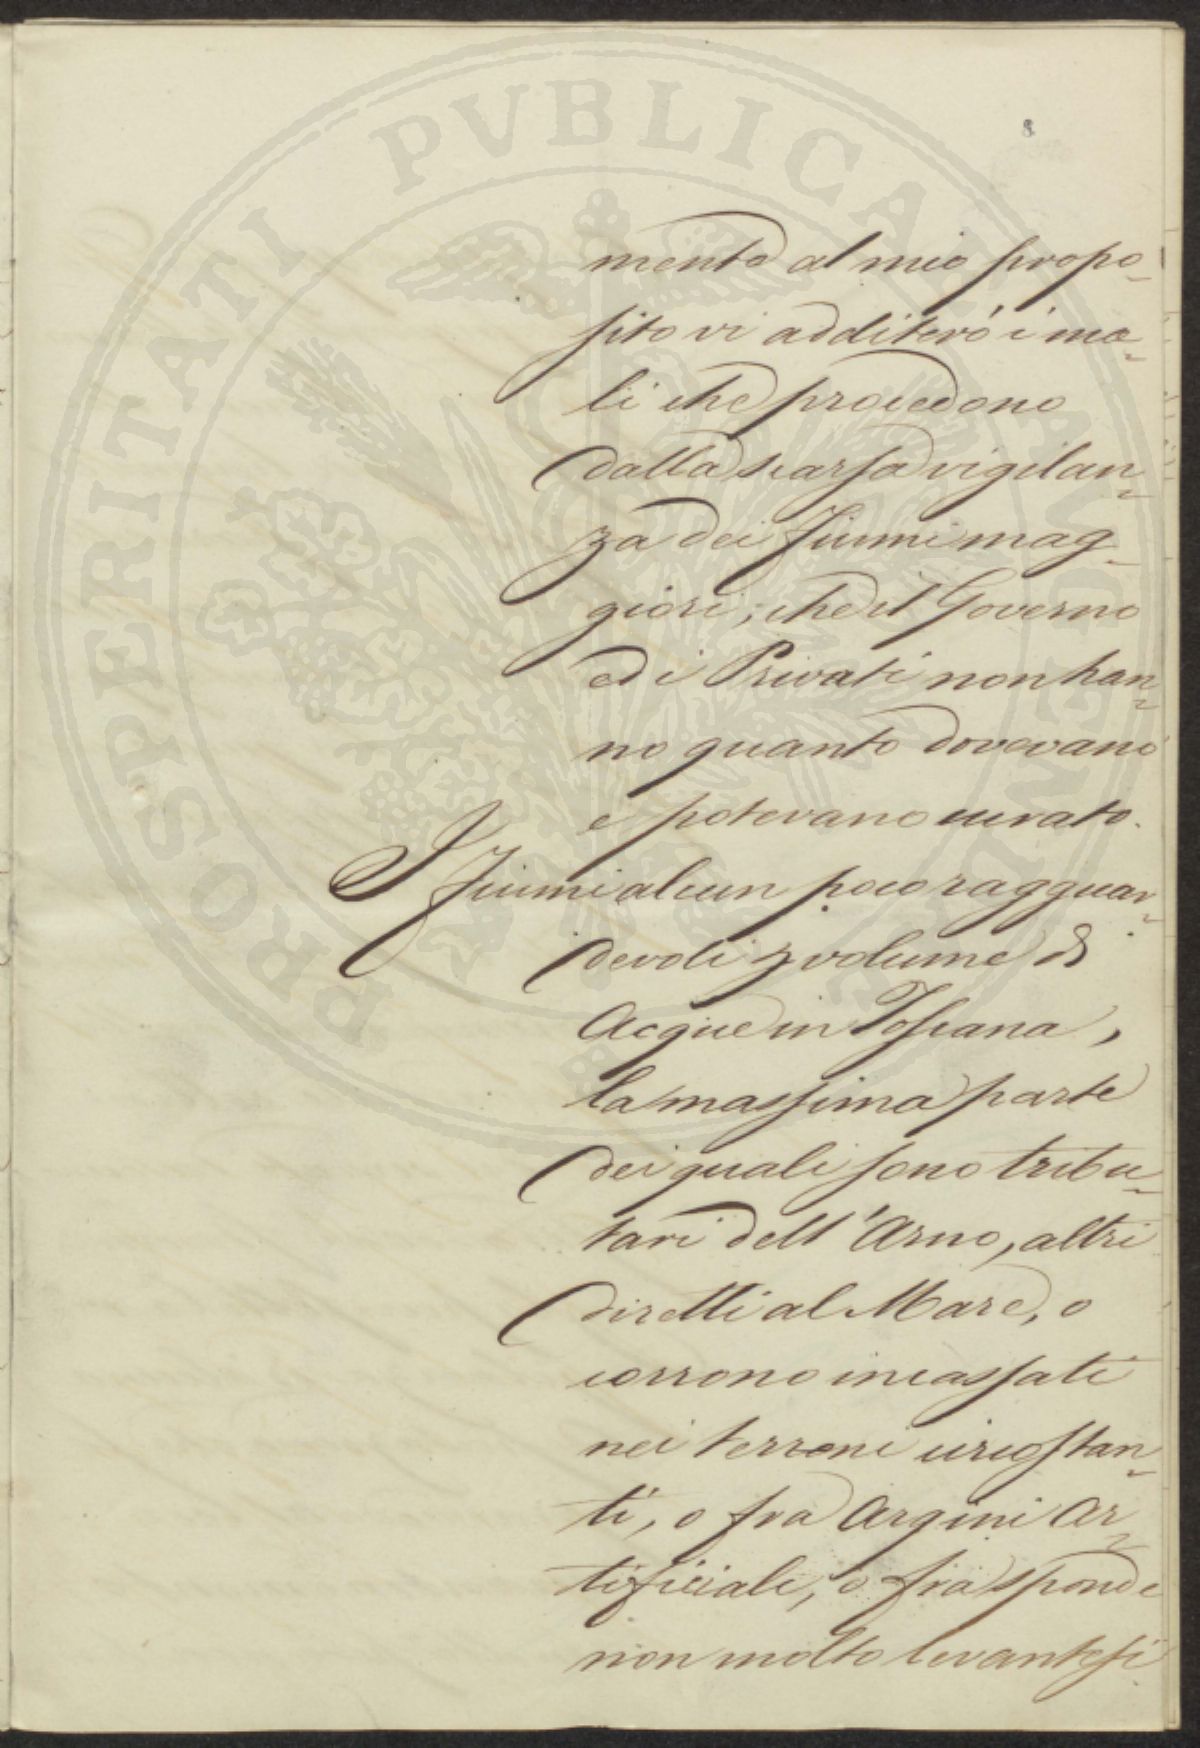 PROSPERITATI PVBLICAE AVGENDAE
8
mento al mio propo-
sito vi additerò i ma-
li che procedono
dalla scarsa vigilan-
za dei fiumi mag-
giori; che il Governo
ed i Privati non han-
no quanto dovevano
e potevano curato.
I fiumi alcun poco ragguar-
devoli p volume di
Acque in Toscana,
la massima parte
dei quali sono tribu-
tari dell'Arno, altri
diretti al Mare, o
corrono incassati
nei terreni circostan-
ti, o fra Argini Ar-
tificiali, o fra sponde
non molto levantesi